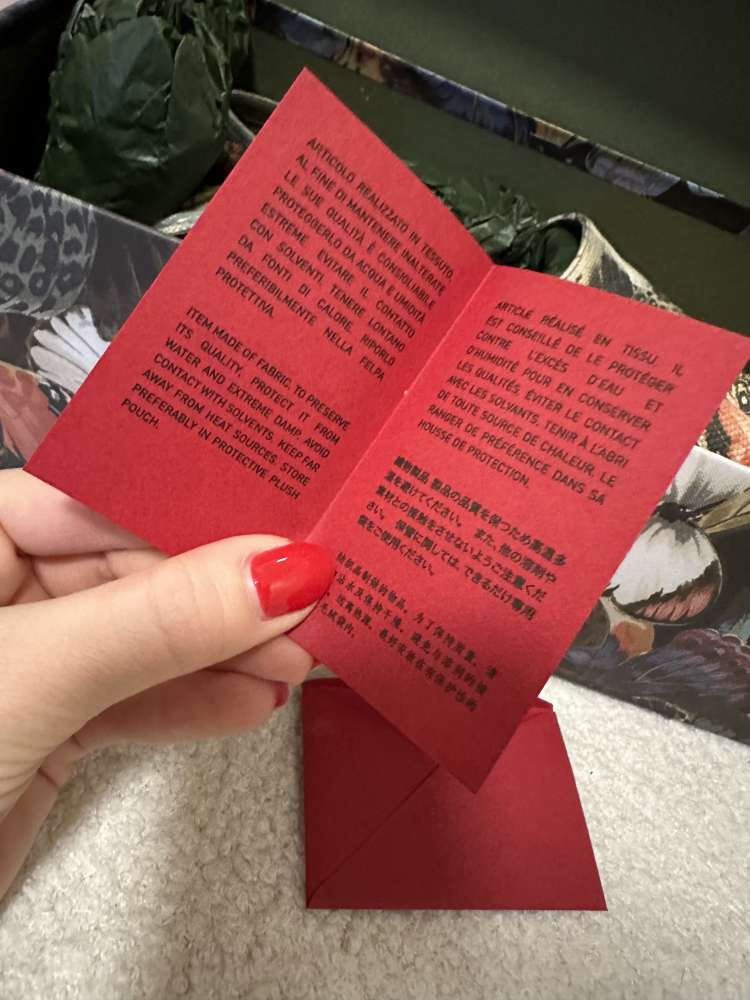 ARTICOLO REALIZZATO IN TESSUTO.
AL FINE DI MANTENERE INALTERATE
LE SUE QUALITÀ È CONSIGLIABILE
PROTEGGERLO DA ACQUA E UMIDITÀ
ESTREME EVITARE IL CONTATTO
CON SOLVENTI TENERE LONTANO
DA FONTI DI CALORE, RIPORLO
PREFERIBILMENTE NELLA FELPA
PROTETTIVA.
ITEM MADE OF FABRIC, TO PRESERVE
ITS QUALITY, PROTECT IT FROM
WATER AND EXTREME DAMP. AVOID
CONTACT WITH SOLVENTS. KEEP FAR
AWAY FROM HEAT SOURCES. STORE
PREFERABLY IN PROTECTIVE PLUSH
POUCH.
ARTICLE RÉALISÉ EN TISSU. IL
EST CONSEILLÉ DE LE PROTÉGER
CONTRE L'EXCÈS D'EAU ET
D'HUMIDITÉ POUR EN CONSERVER
LES QUALITÉS, ÉVITER LE CONTACT
AVEC LES SOLVANTS, TENIR À L'ABRI
DE TOUTE SOURCE DE CHALEUR, LE
RANGER DE PRÉFÉRENCE DANS SA
HOUSSE DE PROTECTION.
織物製品 製品の品質を保つため高温多
湿を避けてください。 また、他の溶剤や
素材との接触をさせないようご注意くだ
さい。 保管に関しては、できるだけ専用
袋をご使用ください。
制做的物品。为了保持质量，请
水及保持干燥。避免与溶剂的接
远离热源。最好安放在有保护性的
毛绒袋内。